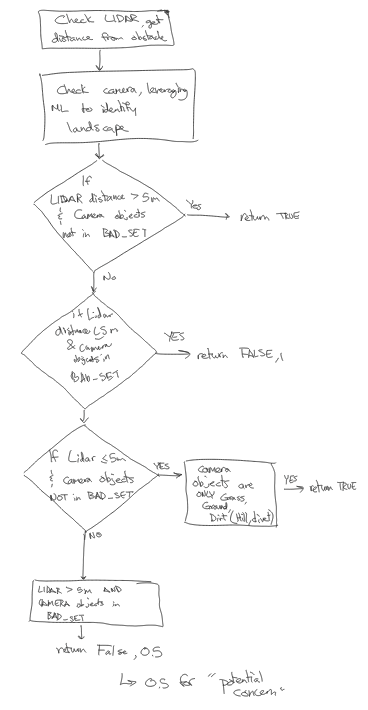 Check LIDAR, get
distance from obstacle
Check camera, leveraging
ML to identify
landscape
If
LIDAR distance > 5m
& Camera objects
not in BAD_SET
Yes
return TRUE
No
if Lidar
distance ≤5m
& camera
objects in
BAD_SET
YES
return FALSE, 1
If Lidar ≤5m
& camera objects
NOT in BAD_SET
YES
camera
objects are
ONLY Grass,
Ground,
Dirt (Hill, divet)
YES
return TRUE
NO
LIDAR > 5m AND
CAMERA objects in
BAD_SET
return False, 0.5
↳ 0.5 for "potential
concern"